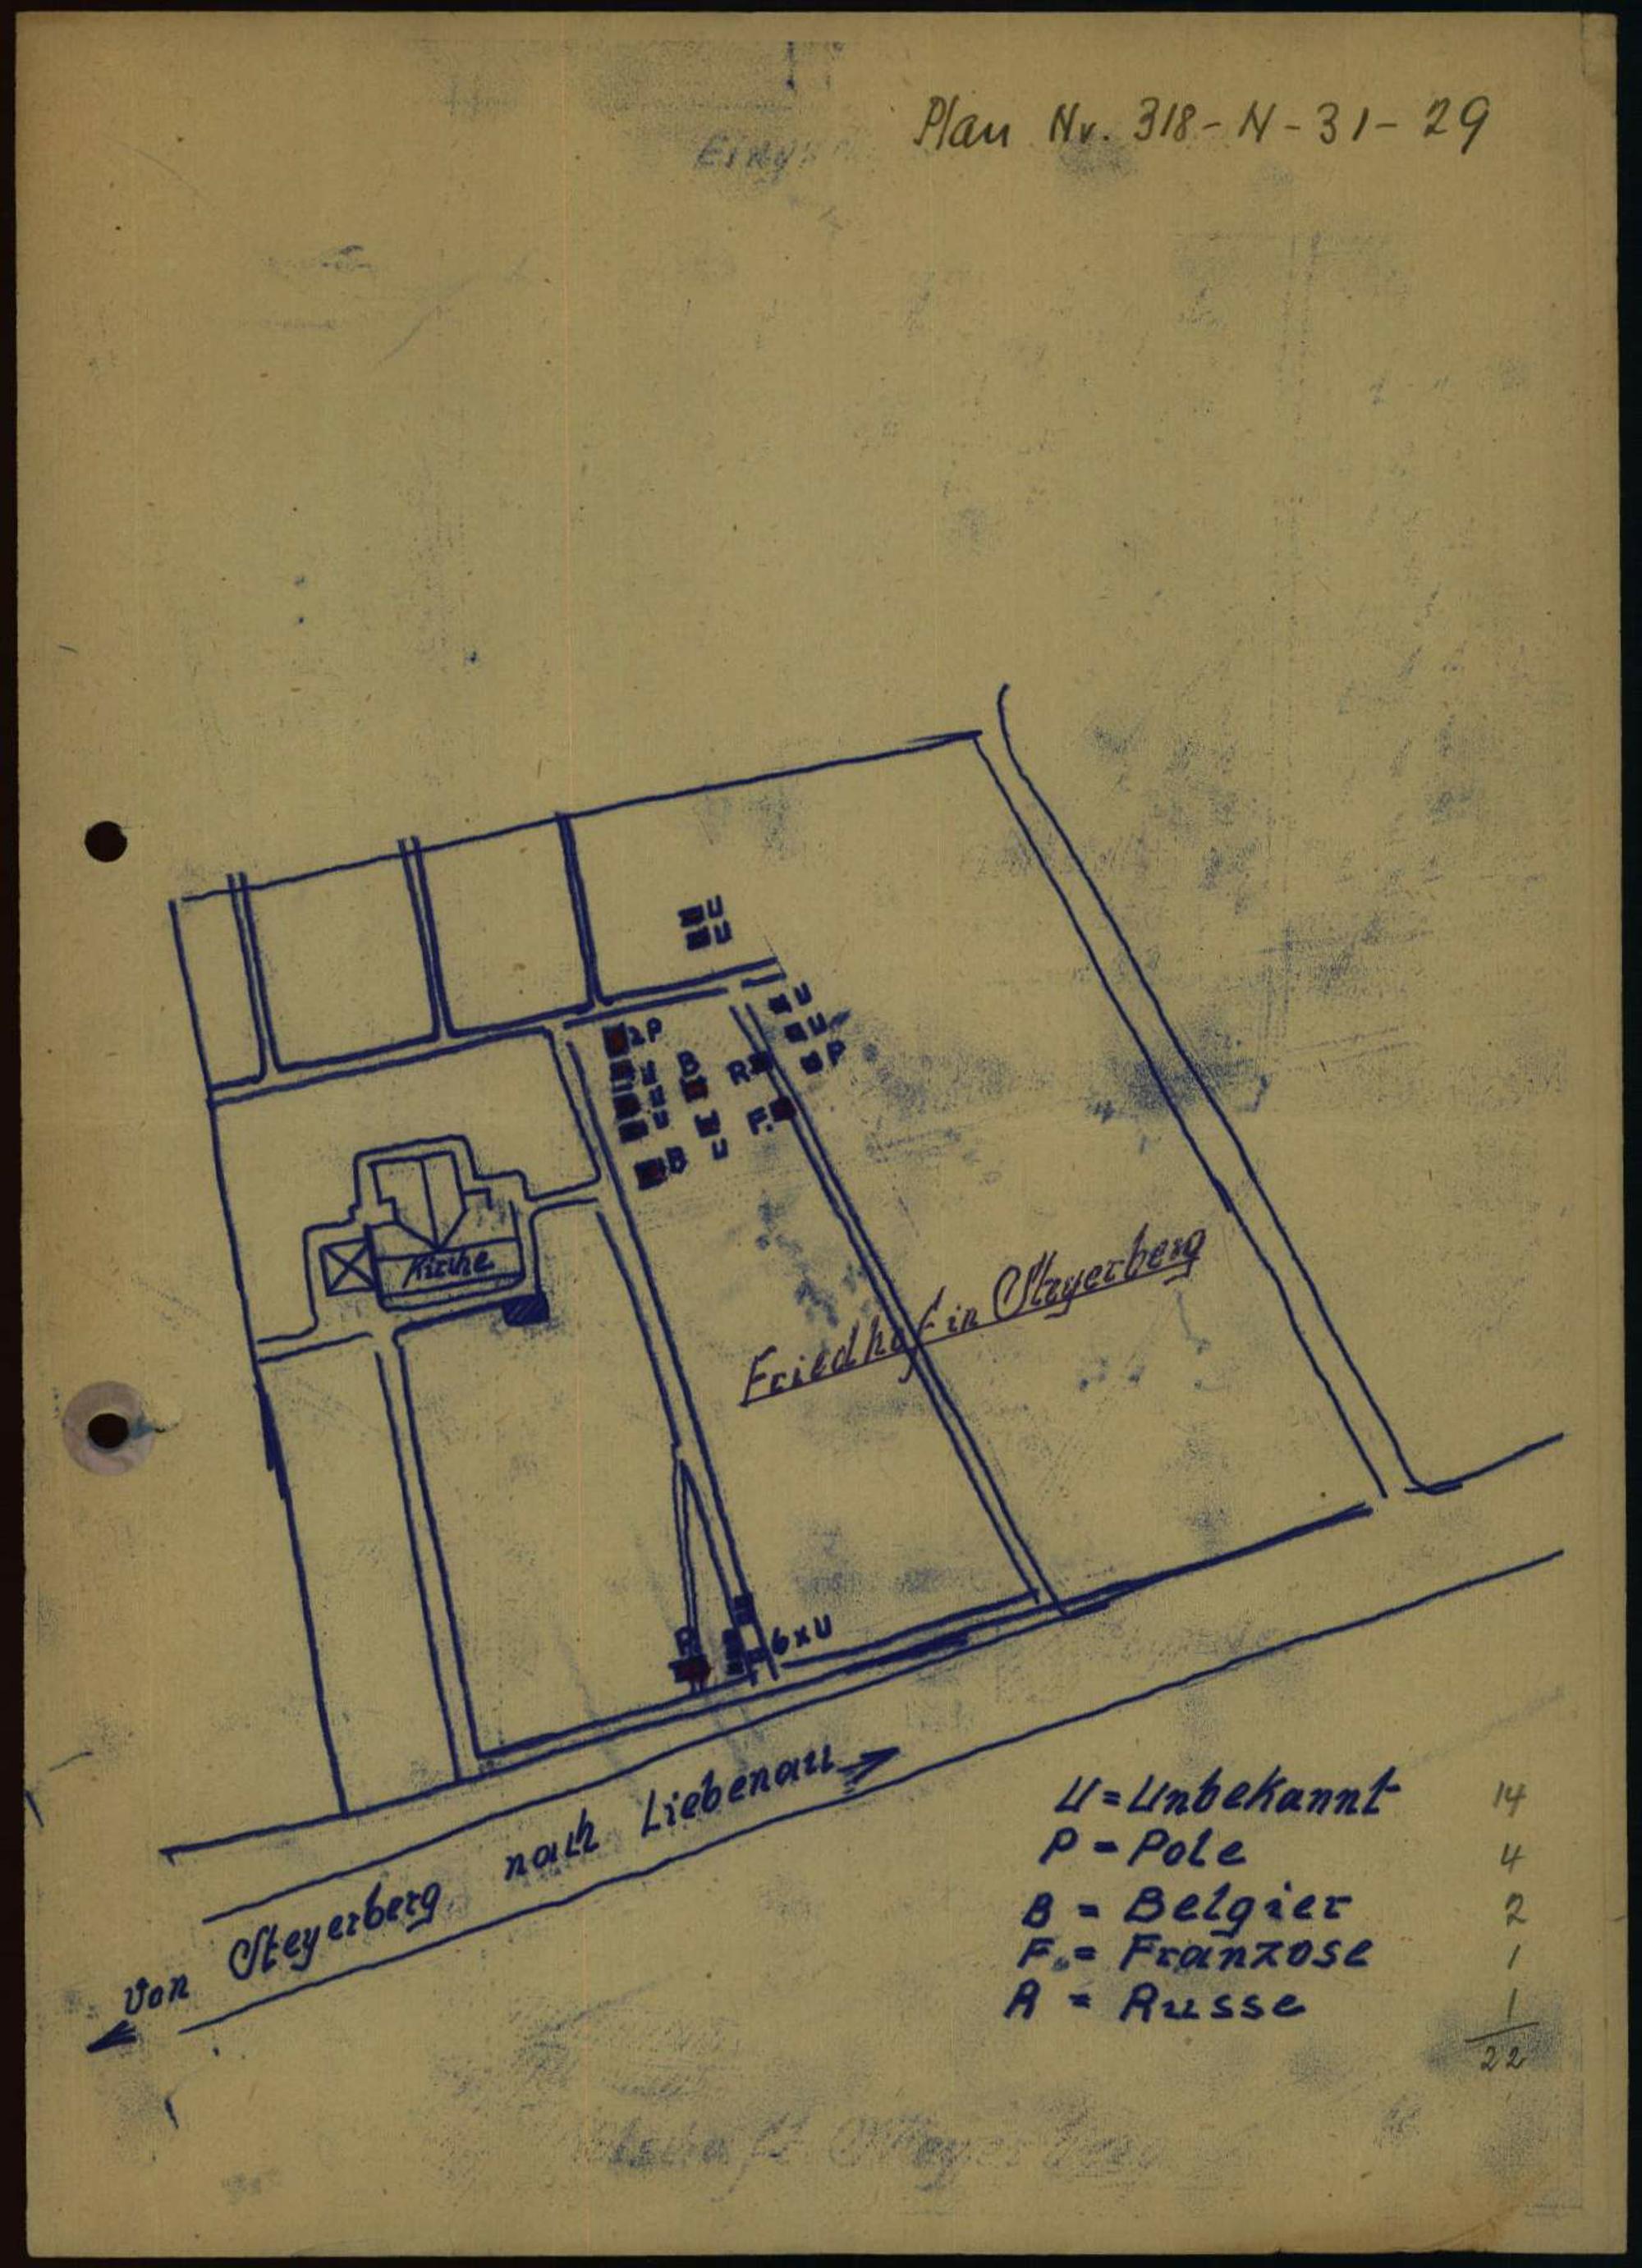 Plan Nr. 318-N-31-29
U
U
U
U
P
2P
U
U
U
B
B
U
R
F.
Kirche
Friedhof in Steyerberg
P
6xU
von Steyerberg nach Liebenau
U = Unbekannt 14
P = Pole 4
B = Belgier 2
F. = Franzose 1
R = Russe 1
22